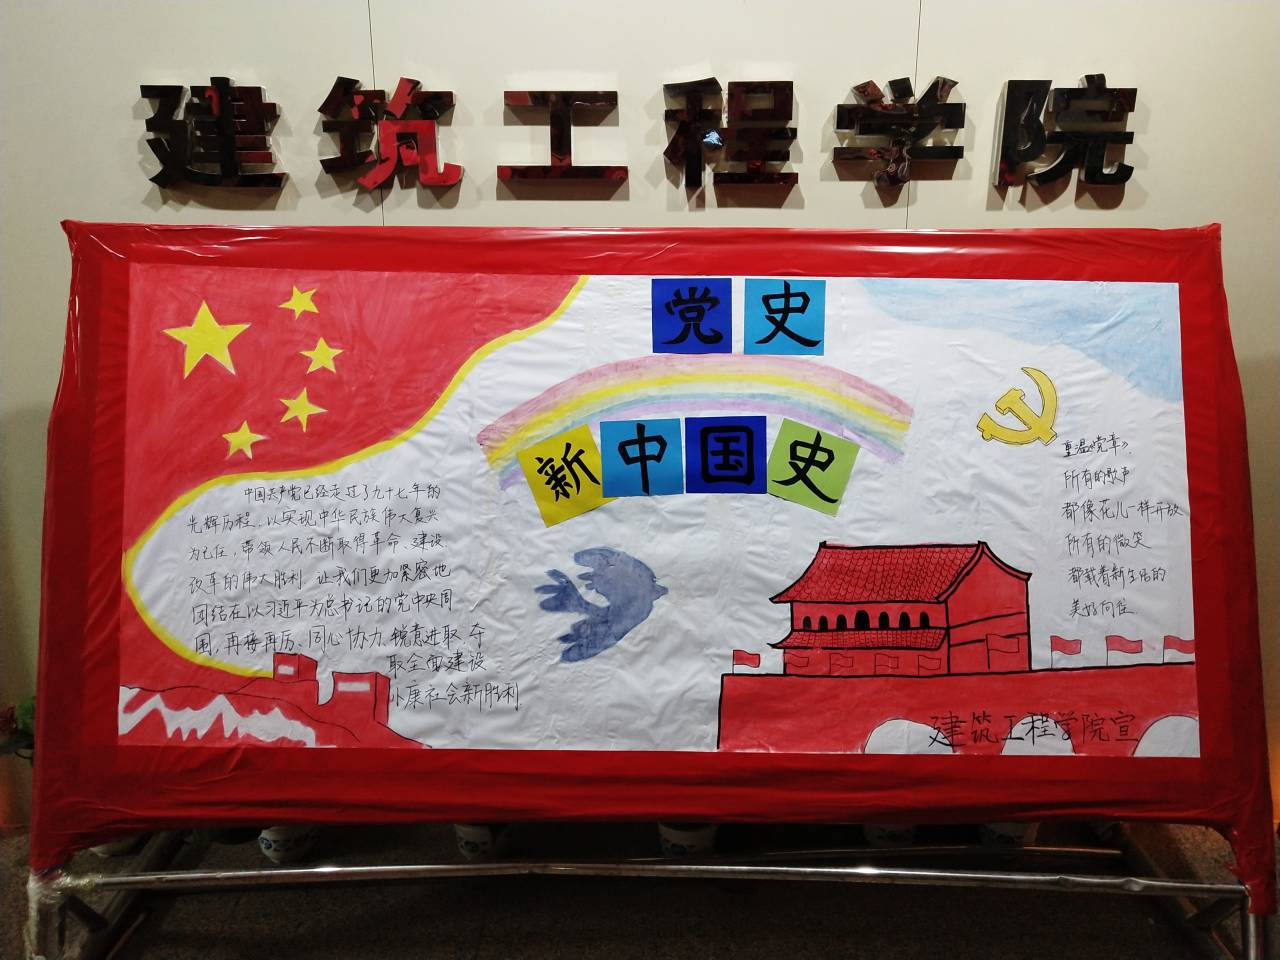 建筑工程学院
党史
新中国史
中国共产党已经走过了九十七年的
光辉历程,以实现中华民族伟大复兴
为已任,带领人民不断取得革命、建设、
改革的伟大胜利 让我们更加紧密地
团结在以习近平为总书记的党中央周
围,再接再厉、同心协力、锐意进取 夺
取全面建设
小康社会新胜利
重温《党章》,
所有的歌声
都像花儿一样开放
所有的微笑
都载着新生活的
美好向往
建筑工程学院宣